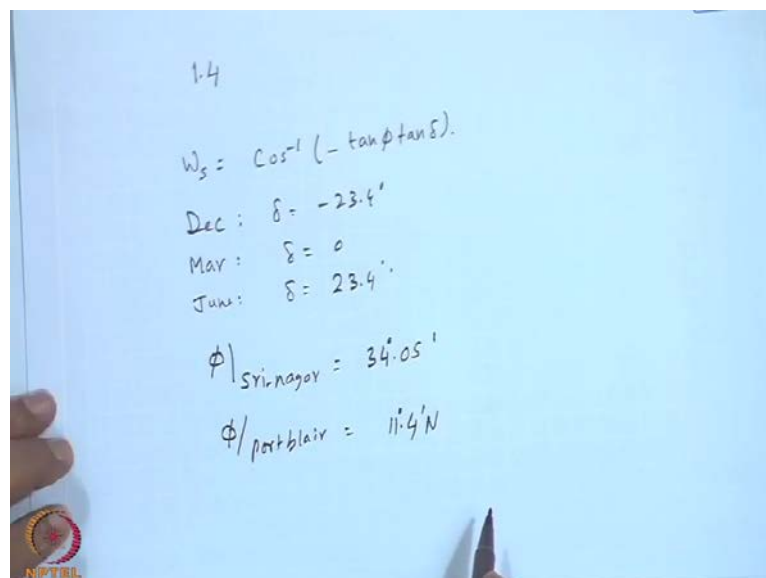 1.4
Ws = Cos⁻¹ (- tanϕ tanδ).
Dec : δ = -23.4°
Mar : δ = 0
June: δ = 23.4°.
ϕ|sri-nagar = 34°.05'
ϕ/portblair = 11°.4'N
NPTEL